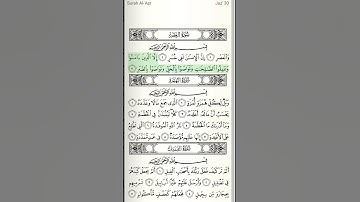 Surah Al-Asr Juz' 30
سُورَةُ العَصْرِ
بِسْمِ اللَّهِ الرَّحْمَٰنِ الرَّحِيمِ
وَالْعَصْرِ ١ إِنَّ الْإِنسَٰنَ لَفِي خُسْرٍ ٢ إِلَّا الَّذِينَ ءَامَنُوا
وَعَمِلُوا الصَّٰلِحَٰتِ وَتَوَاصَوْا بِالْحَقِّ وَتَوَاصَوْا بِالصَّبْرِ ٣
سُورَةُ الهُمَزَةِ
بِسْمِ اللَّهِ الرَّحْمَٰنِ الرَّحِيمِ
وَيْلٌ لِّكُلِّ هُمَزَةٍ لُّمَزَةٍ ١ الَّذِي جَمَعَ مَالًا وَعَدَّدَهُ ٢
يَحْسَبُ أَنَّ مَالَهُ أَخْلَدَهُ ٣ كَلَّا لَيُنبَذَنَّ فِي الْحُطَمَةِ ٤
وَمَا أَدْرَىٰكَ مَا الْحُطَمَةُ ٥ نَارُ اللَّهِ الْمُوقَدَةُ ٦ الَّتِي تَطَّلِعُ
عَلَى الْأَفْـِٔدَةِ ٧ إِنَّهَا عَلَيْهِم مُّؤْصَدَةٌ ٨ فِي عَمَدٍ مُّمَدَّدَةٍ ٩
سُورَةُ الفِيلِ
بِسْمِ اللَّهِ الرَّحْمَٰنِ الرَّحِيمِ
أَلَمْ تَرَ كَيْفَ فَعَلَ رَبُّكَ بِأَصْحَٰبِ الْفِيلِ ١ أَلَمْ يَجْعَلْ كَيْدَهُمْ
فِي تَضْلِيلٍ ٢ وَأَرْسَلَ عَلَيْهِمْ طَيْرًا أَبَابِيلَ ٣ تَرْمِيهِم
بِحِجَارَةٍ مِّن سِجِّيلٍ ٤ فَجَعَلَهُمْ كَعَصْفٍ مَّأْكُولٍ ٥